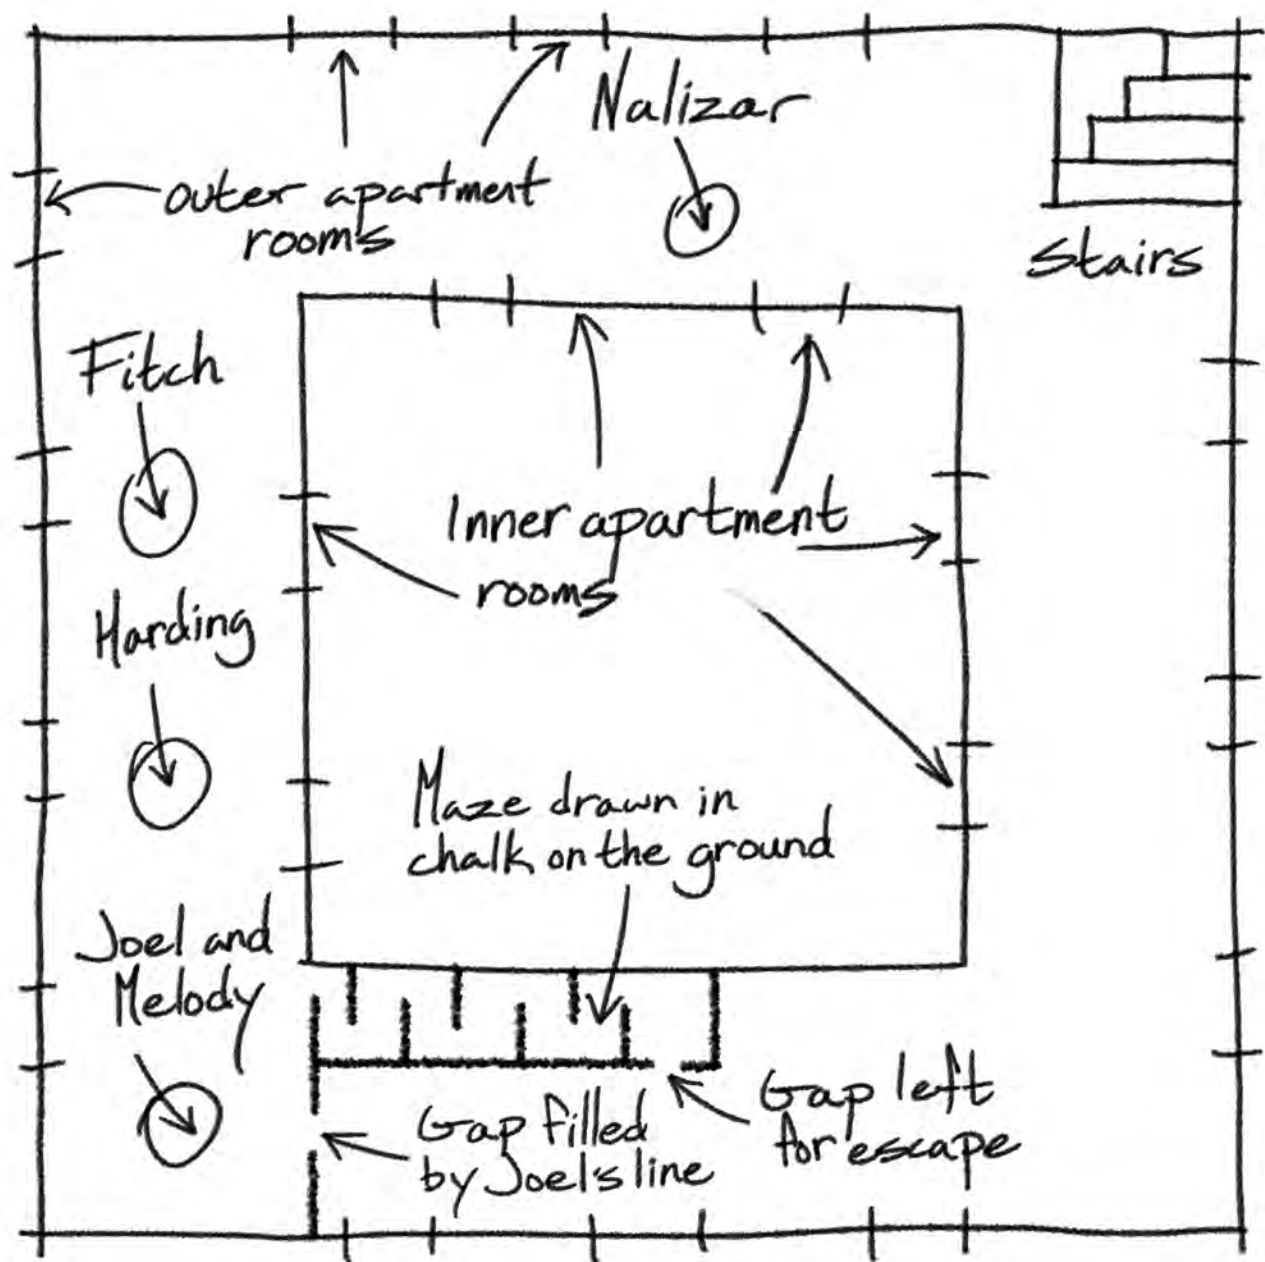 Nalizar
outer apartment
rooms
Stairs
Fitch
Inner apartment
rooms
Harding
Maze drawn in
chalk on the ground
Joel and
Melody
Gap left
for escape
Gap filled
by Joel's line